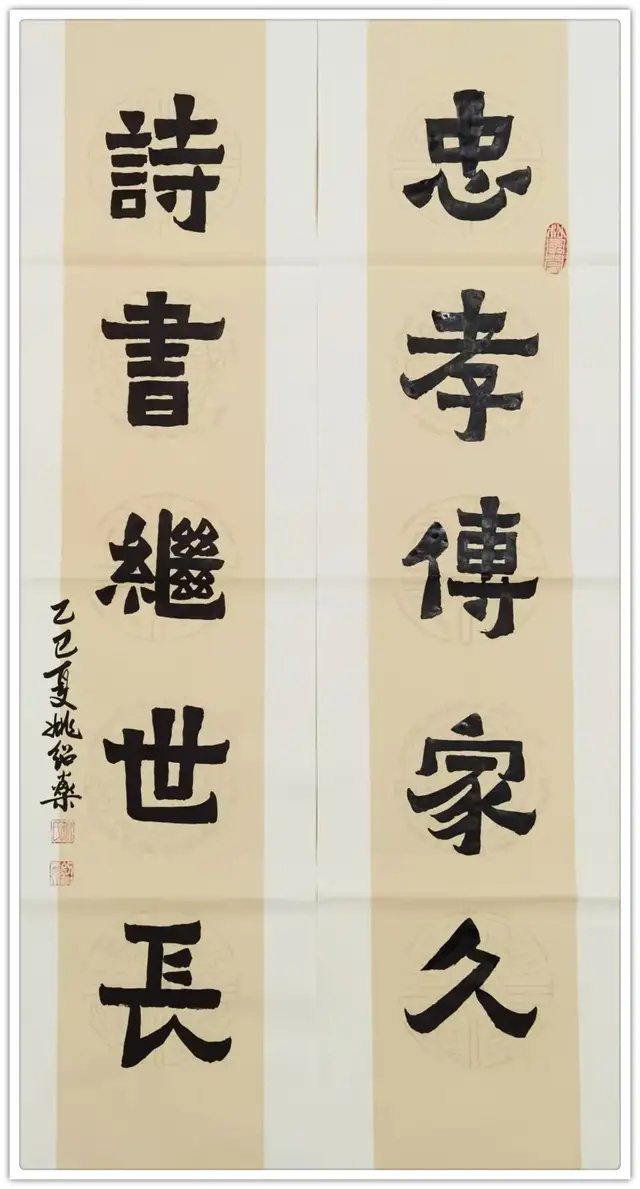 忠孝傳家久
詩書繼世長
乙巳夏姚紹燊